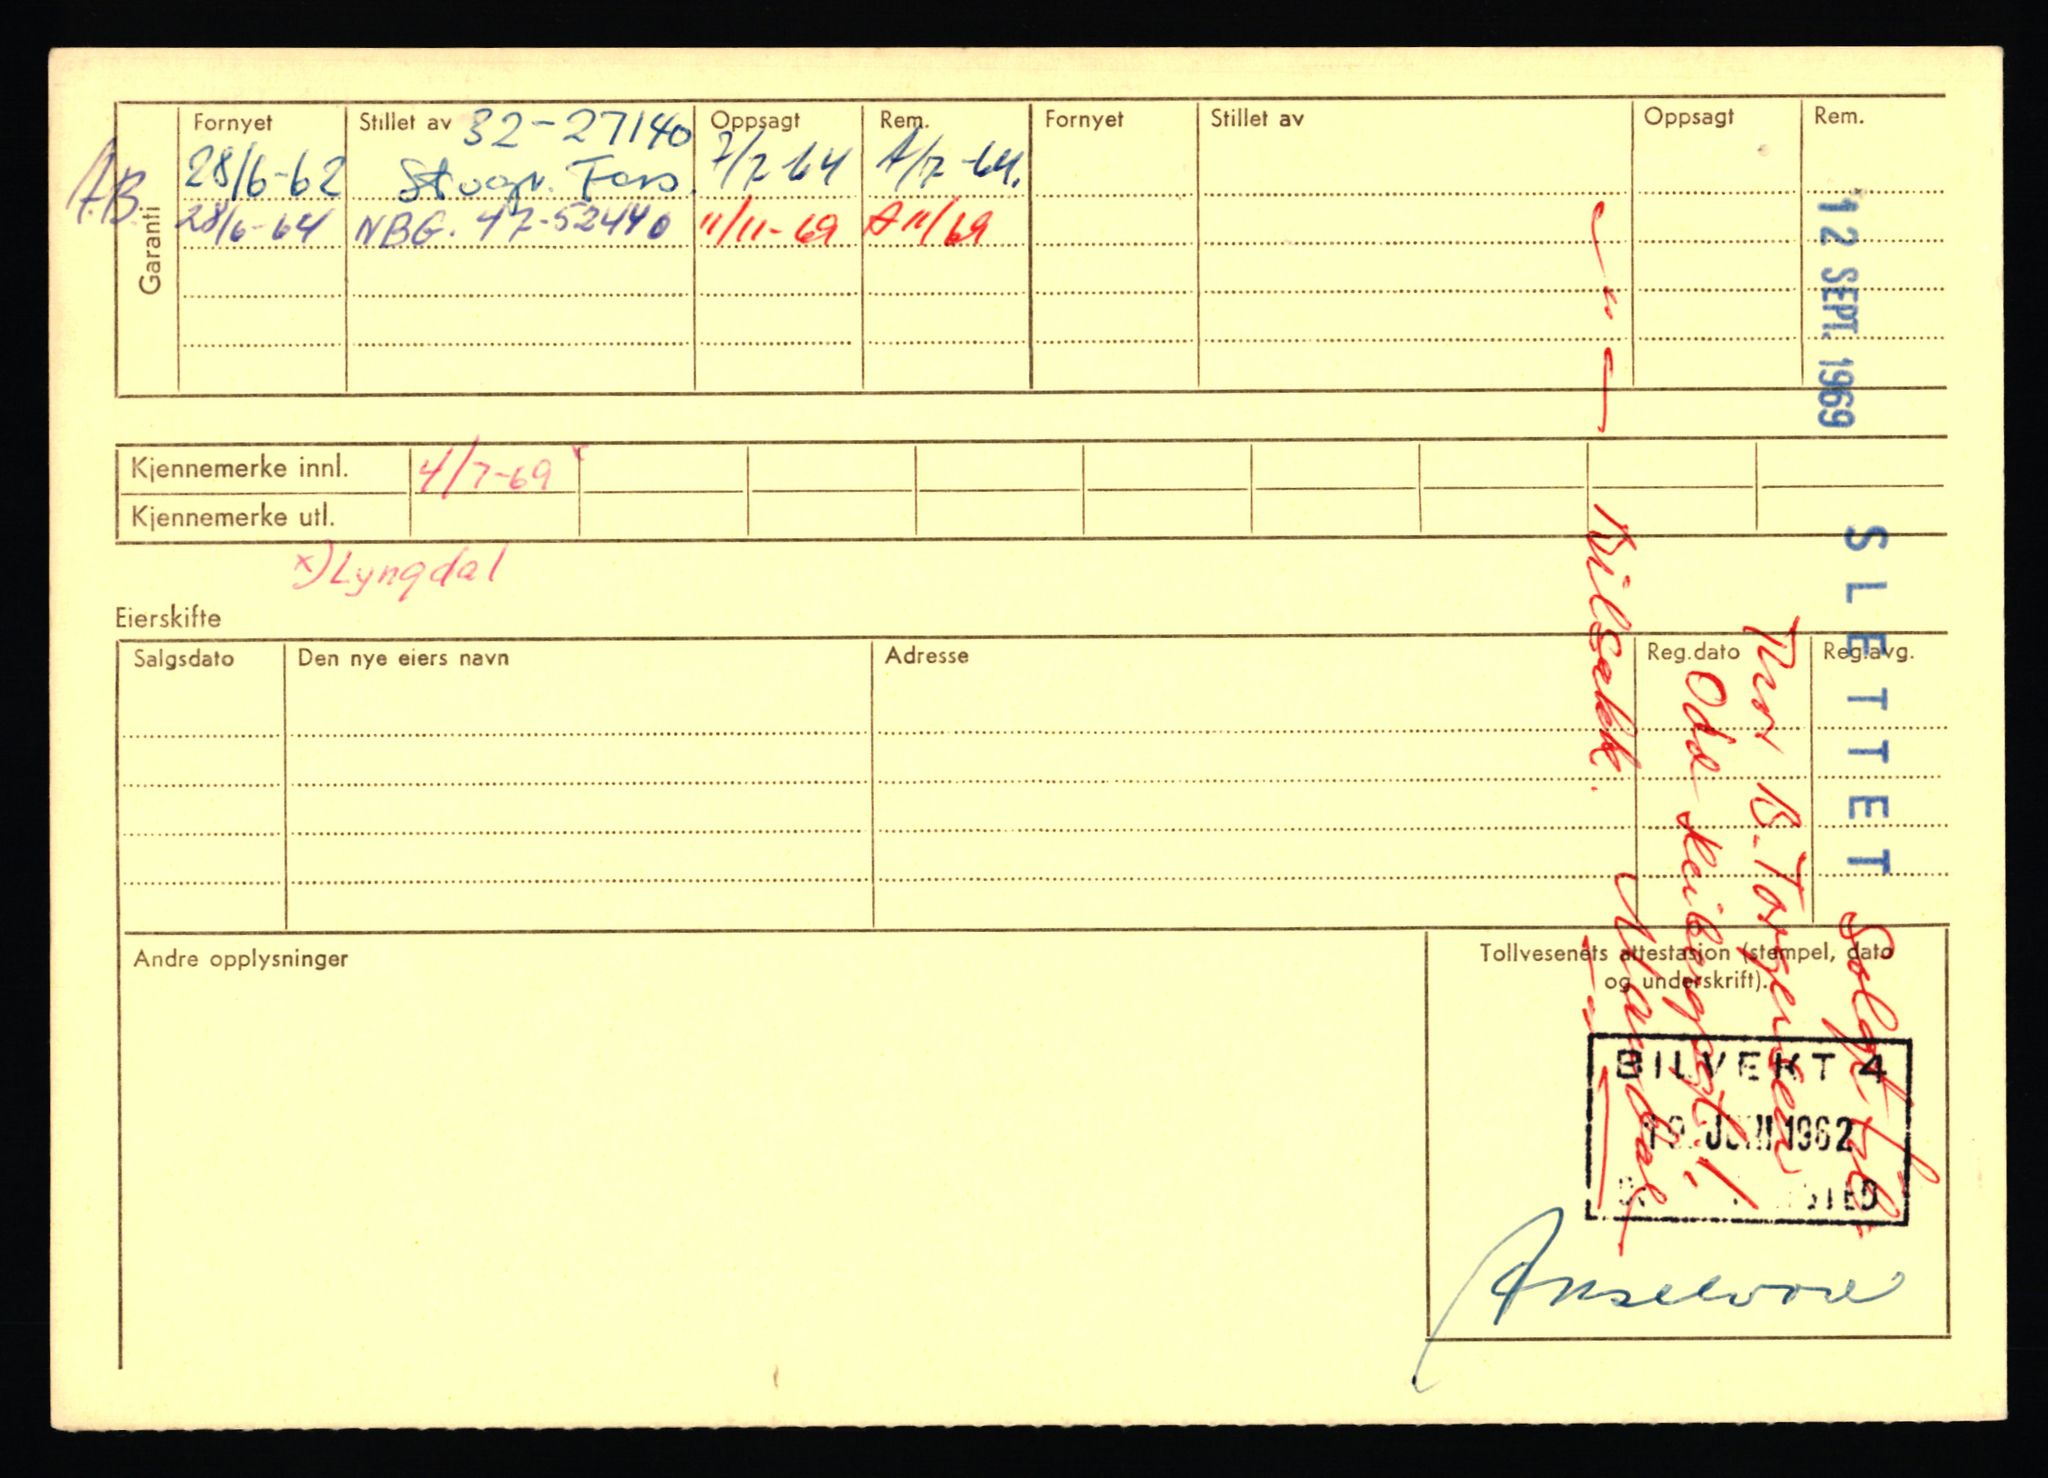 Garanti
Fornyet Stillet av 32-27140 Oppsagt Rem. Fornyet Stillet av Oppsagt Rem.
A.B. 28/6-62 7/7-64 A/7-64.
28/6-64 NBG. 47-52440 11/11-69 A11/69
Kjennemerke innl. 4/7-69 x
Kjennemerke utl.
x) Lyngdal
Eierskifte
Salgsdato Den nye eiers navn Adresse Reg.dato Reg.avg.
Andre opplysninger
Tollvesenets attestasjon (stempel, dato
og underskrift).
BILVEKT 4
JUNI 1962
12 SEPT. 1969
SLETTET
Solgt til
Thor B. Torgersen
Odd
Bilsakk. Mandal